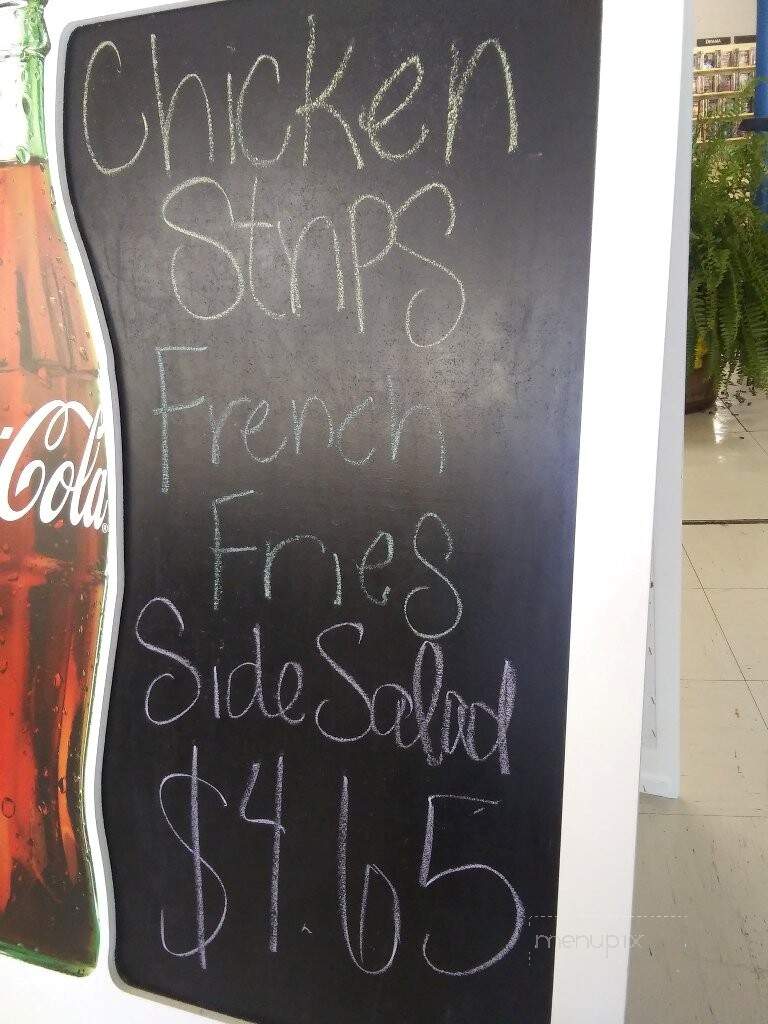 Chicken
Strips
French
Fries
Side Salad
$4.65
Cola
DRAMA
menupix